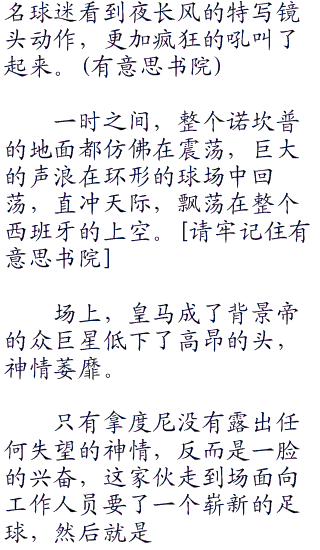 名球迷看到夜长风的特写镜
头动作，更加疯狂的吼叫了
起来。(有意思书院)
一时之间，整个诺坎普
的地面都仿佛在震荡，巨大
的声浪在环形的球场中回
荡，直冲天际，飘荡在整个
西班牙的上空。[请牢记住有
意思书院]
场上，皇马成了背景帝
的众巨星低下了高昂的头，
神情萎靡。
只有拿度尼没有露出任
何失望的神情，反而是一脸
的兴奋，这家伙走到场面向
工作人员要了一个崭新的足
球，然后就是